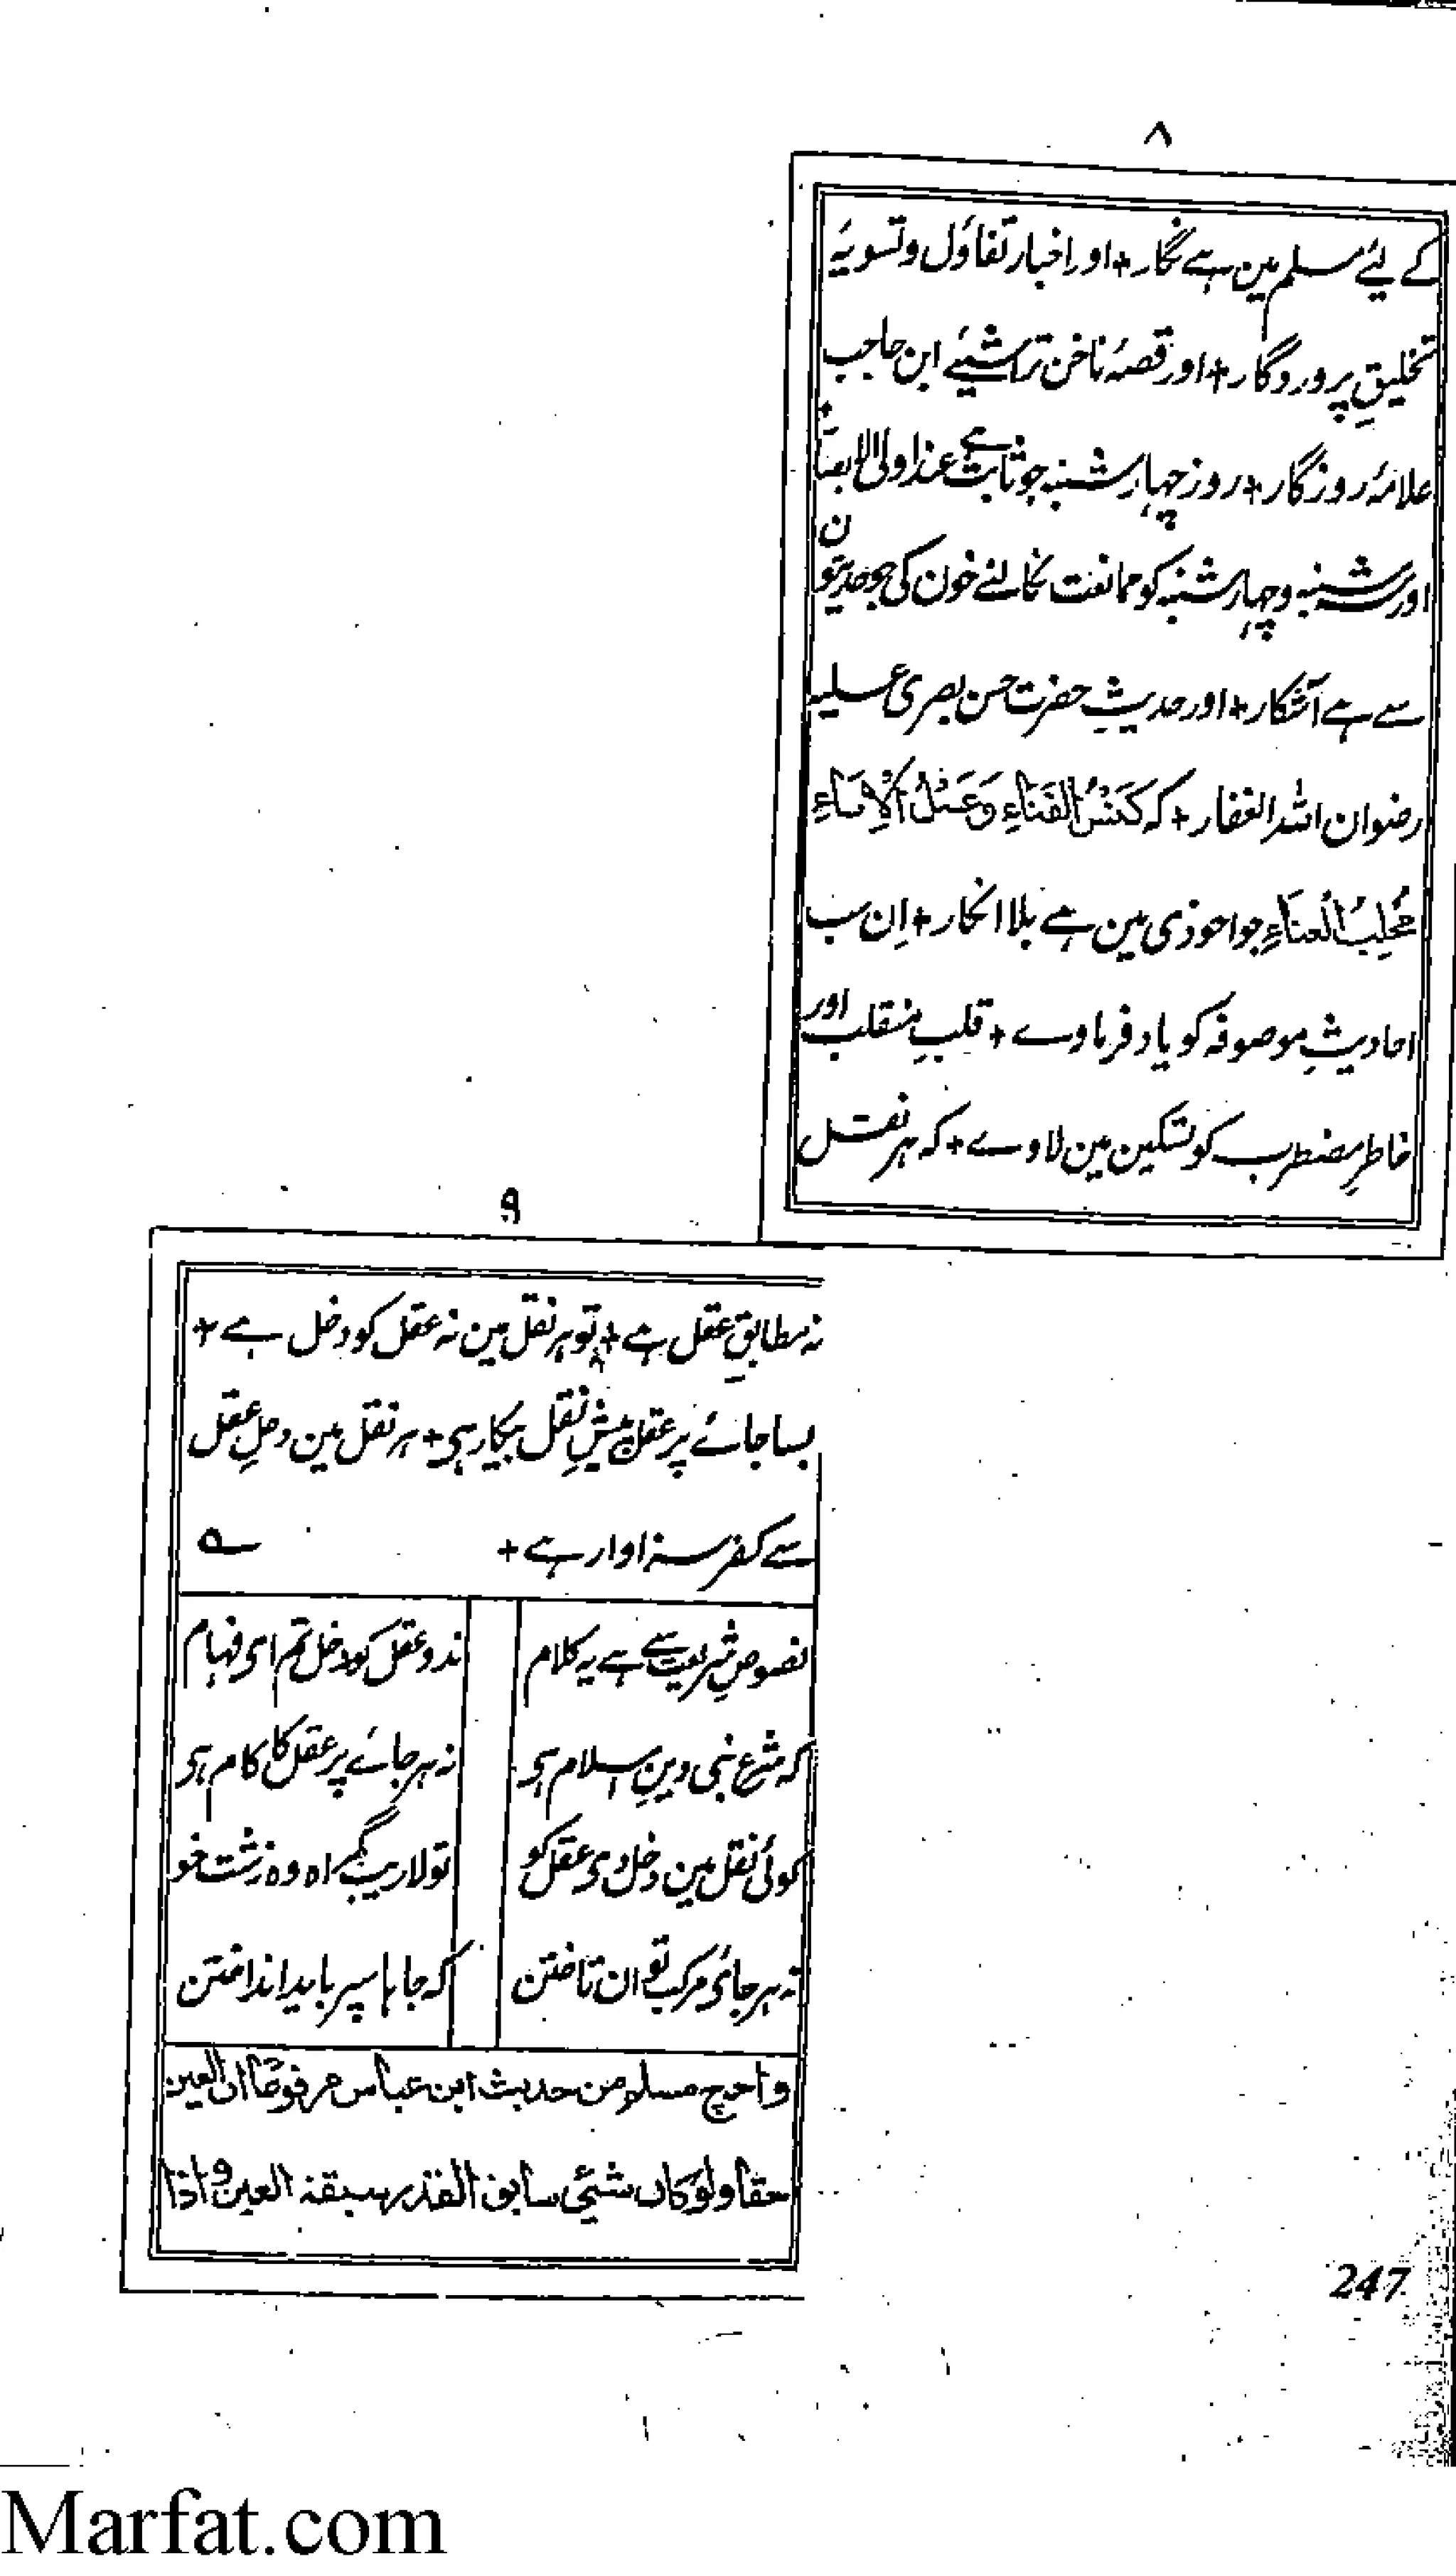 ۸
کے لیے مسلم مین ہے نگار + اور اخبار تفاؤل و تسویۂ
تخلیقِ پروردگار + اور قصۂ ناخن تراشیئے ابن حاجب
علامۂ روزگار + روز چہار شنبہ جو ثابت ہے عند اولی الابصار
اور سہ شنبہ و چہار شنبہ کو ممانعت نکالنے خون کی جو حدیثون
سے ہے آشکار + اور حدیثِ حضرت حسن بصری علیہ
رضوان اللہ الغفار + کہ کَنْسُ الْفِنَاءِ وَغَسْلُ الْاِنَاءِ
جو احوذی مین ہے بلا انکار + اِن سب
احادیثِ موصوفہ کو یاد فرماوے + قلبِ منقلب اور
خاطرِ مضطرب کو تسکین مین لاوے + کہ ہر نقل
۹
نہ مطابقِ عقل ہے + تو ہر نقل مین نہ عقل کو دخل ہے +
بسا جائے پر عقل پیشِ نقل بیکار ہی + ہر نقل مین دخلِ عقل
سے کفر سزاوار ہے + ؎
نصوصِ شریعت سے ہے یہ کلام ندو عقل کو دخل تم ای فہام
کہ شرع نبی دینِ اسلام ہی نہ ہر جائے پر عقل کا کام ہی
کوئی نقل مین دخل دی عقل کو تو لاریب گمراہ وہ زشت خو
نہ ہر جای مرکب توان تاختن کہ جاہا سپر باید انداختن
واخرج مسلم من حدیث ابن عباس مرفوعًا ان العین
حق ولو کان شیئی سابق القدر سبقتہ العین واذا
247
Marfat.com